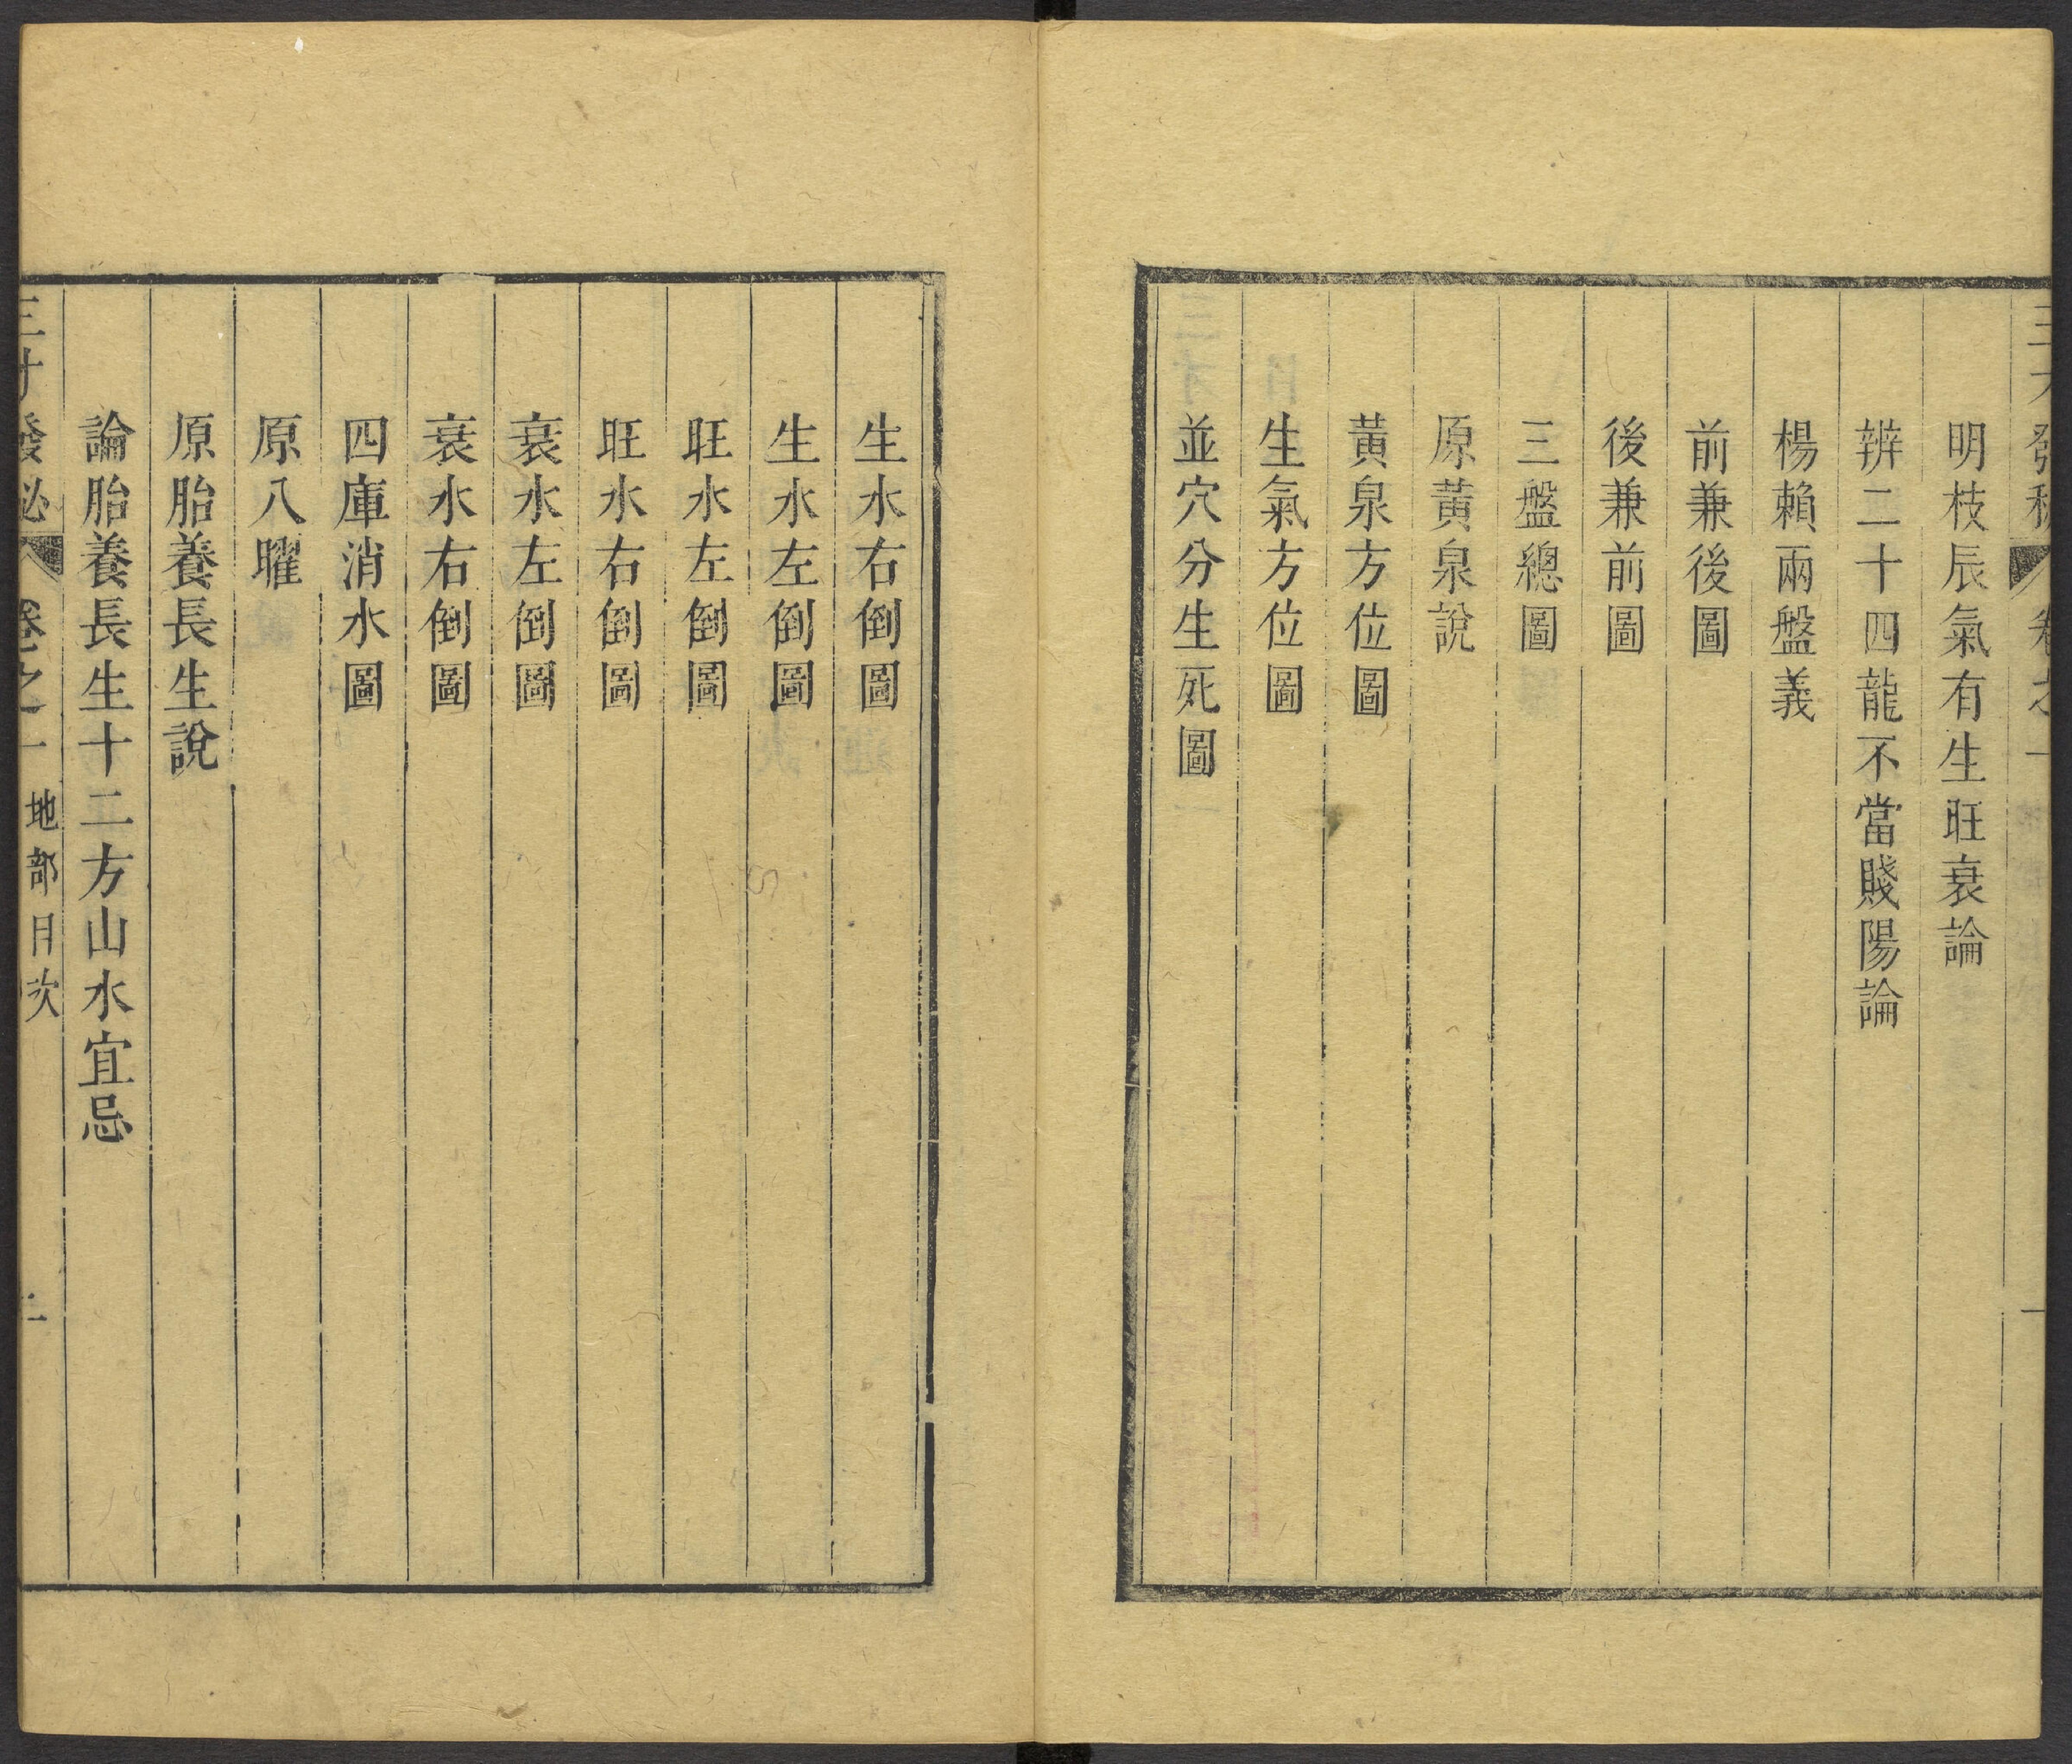 三才發秘 卷之一 一
明枝辰氣有生旺衰論
辨二十四龍不當賤陽論
楊賴兩盤義
前兼後圖
後兼前圖
三盤總圖
原黃泉說
黃泉方位圖
生氣方位圖
並穴分生死圖
生水右倒圖
生水左倒圖
旺水左倒圖
旺水右倒圖
衰水左倒圖
衰水右倒圖
四庫消水圖
原八曜
原胎養長生說
論胎養長生十二方山水宜忌
三才發祕 卷之一 地部目次